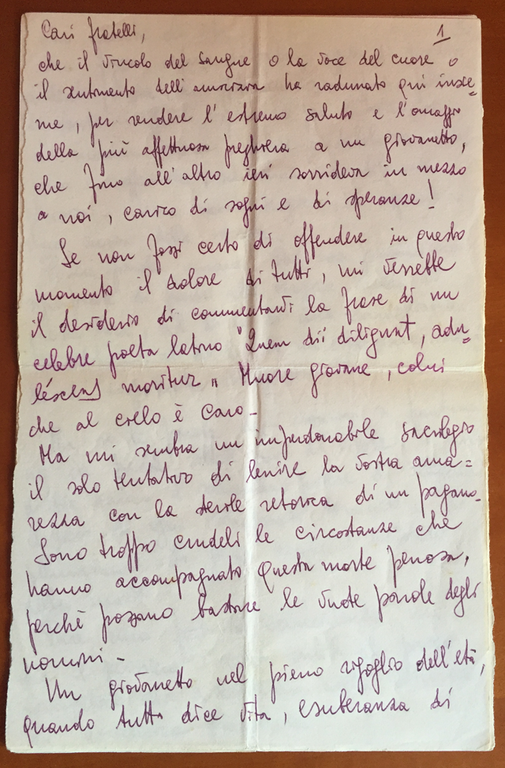 1
Cari fratelli,
che il vincolo del sangue o la voce del cuore o
il sentimento dell'amicizia ha radunato qui insie=
me, per rendere l'estremo saluto e l'omaggio
della più affettuosa preghiera a un giovanetto,
che fino all'altro ieri sorrideva in mezzo
a noi, carico di sogni e di speranze!
Se non fossi certo di offendere in questo
momento il dolore di tutti, mi verrebbe
il desiderio di commentarvi la frase di un
celebre poeta latino "Quem dii diligunt, adu=
léscens moritur" Muore giovane, colui
che al cielo è caro-
Ma mi sembra un imperdonabile sacrilegio
il solo tentativo di lenire la vostra ama=
rezza con la sterile retorica di un pagano-
Sono troppo crudeli le circostanze che
hanno accompagnato questa morte penosa,
perchè possano bastare le vuote parole degli
uomini-
Un giovanetto nel pieno rigoglio dell'età,
quando tutto dice vita, esuberanza di